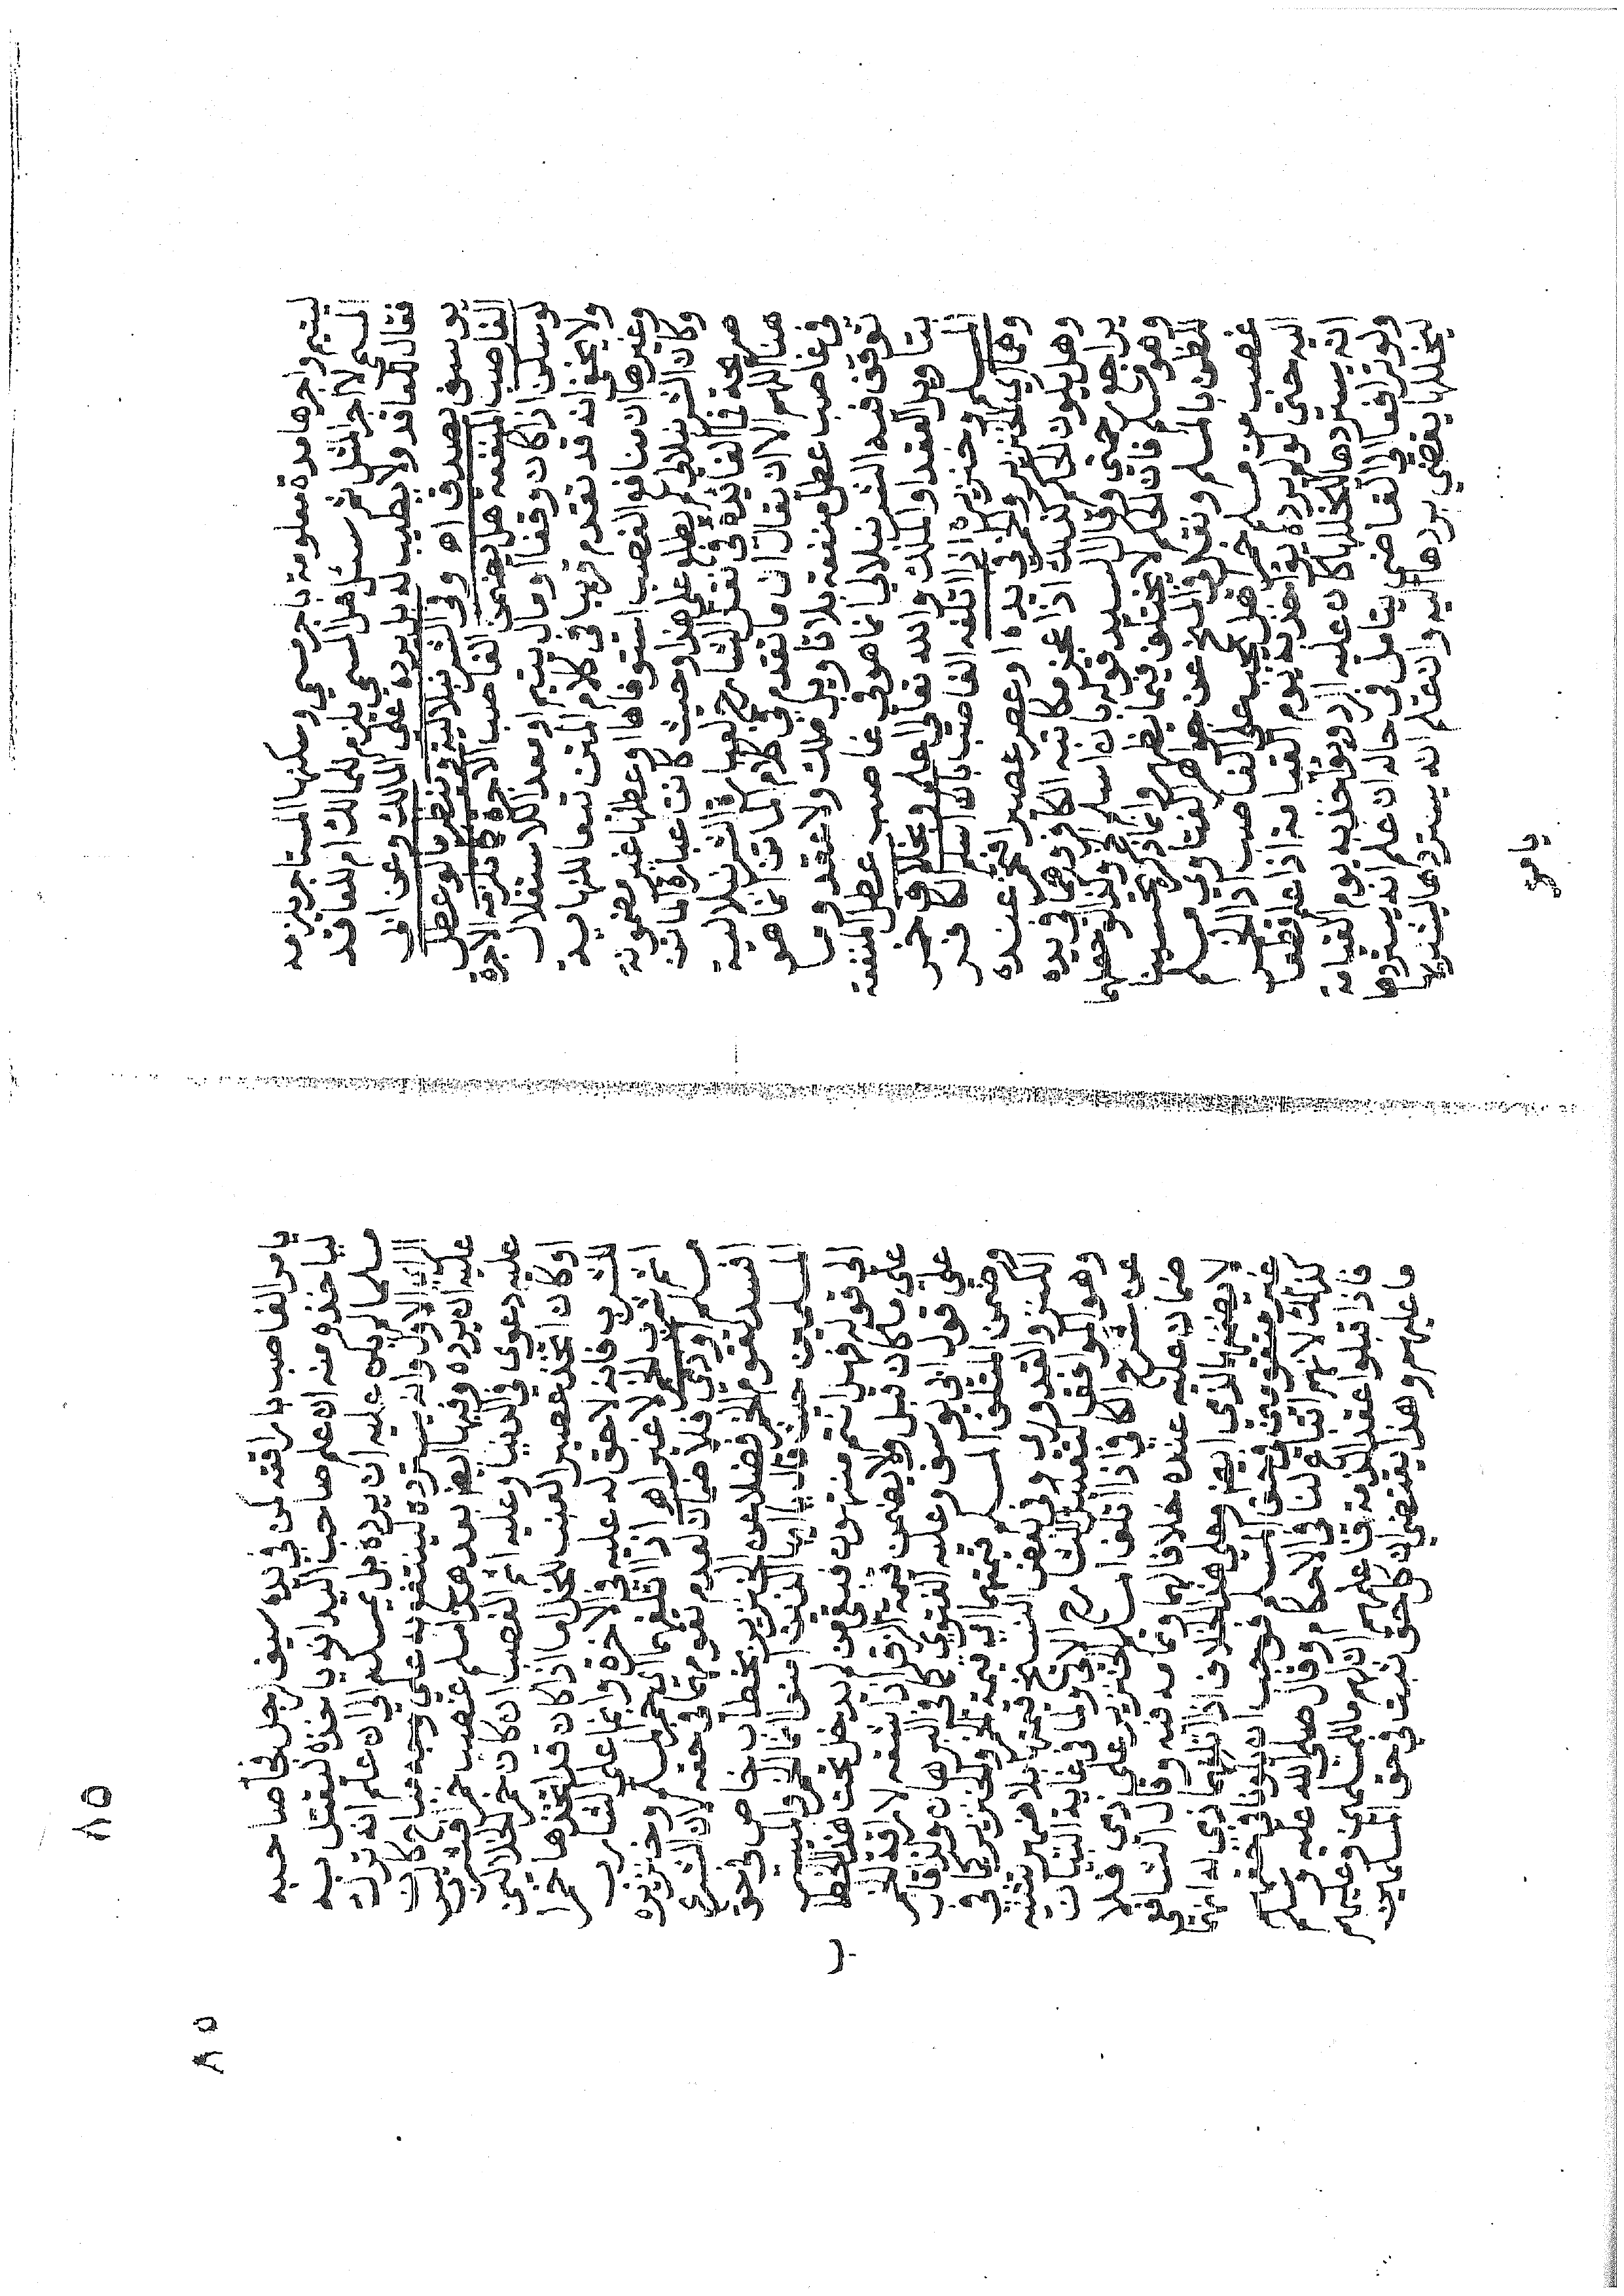 ليتيم واجرها مدة معلومة باجر مسمي وسكنها المستاجر يلزمه
المسمي لا اجر المثل ثم سئل هل المسمي يلزم للمالك ام للعاقد
فقال للعاقد ولا يطيب له بل يرده على المالك وعن ابي
يوسف يتصدق به اه وفي الشرنبلالية وينظر ما لو عطل
الغاصب المنفعة هل يضمن الغاصب الاجرة كما تلزمه الاجرة
لو سكن اذا كان وقفا او مال يتيم او معد للاستغلال
ولا يخفى انه قد تقدم قريبا في كلام المتن تبعا للنهاية
وغيرها ان منافع الغصب استوفاها او عطلها غير مضمونة
وكان الشرنبلالي لم يطلع على هذا وحيث كانت عبارة الماتن
صريحة فما الفايدة في نقل الشارح لعبارة الشرنبلالية
هنا اللهم الا ان يقال ان ما تقدم في كلام الماتن انما هو
في غاصب عطل منفعة بلا تاويل ملك ولا عقد وما
توقف فيه الشرنبلالي انما هو في غاصب عطل المنفعة
بتاويل العقد او الملك والله تعالى اعلم وبخلاف خمر
المسلم وخنزيره اذا اتلفه الغاصب بان اسلم كافر
وهما اي الخنزير والخمر في يده او عصر عصيرا فتخمر عنده
وهل يكون الحكم كذلك اذا عجز مكاتبه الكافر وهما في يده
يراجع حتى وقال السيد قوله بان اسلم الخ وكذا لو حصلهما
وهو مسلم فان الحكم لا يختلف فيما يظهر وانما ذكره تحسينا
للظن بالمسلم ونقل في المنح عن جواهر الفتاوي مسلم
غصب من مسلم خمرا هل يجب على الغاصب اداء الخمر
اليه حتى لو لم يرده يؤاخذ به يوم القيامة اذا علم قطعا
انه يستردها ليخللها كان عليه الرد ويؤاخذ به يوم القيامة
ولو ترافعا الى القاضي يتامل في حاله ان علم انه يستردها
ليخللها يقضي بردها اليه وان علم انه يستردها ليشربها
يامر
٨٥
٨٥
يامر الغاصب بارافته كمن في يده سيف لرجل فجا صاحبه
لياخذه منه ان علم صاحب اليد انه ياخذه ليقتل به
مسلما لم يكن عليه ان يرده بل يمسكه الى ان علم انه ترك
الراي الاول وانه يسترده لينتفع به على وجه مباح كان
عليه ان يرده وفيها ايضا بعد هذا مسلم غصب خمرا فشربت
عليه دعوى في الدنيا وعليه اثم الغصب ان كان خمر الخلالين
او كان اتخذ عصير العنب للخل اما اذا كان قد اتخذها خمرا
للشرب فانه لا حق له عليه في الاخرة وانما على الشارب
اثم شرب الخمر لا غير اه اذا اتلفهما اي خمر المسلم وخنزيره
مسلم او ذمي فلا ضمان لعدم تقومهما في حقه لان الشرع
افسد تقوم الخمر فضلا عن الخنزير بخطاب خاص في حق
المسلمين حيث قال يا ايها الذين امنوا انما الخمر والميسر
الى قوله فهل انتم منتهون فبقي من لم يدخل تحت هذا الخطاب
على ما كان قبل ولا يضمن قيمة الزق اذا شقه لاراقة الخمر
على قول ابي يوسف وعليه الفتوى كما في البرهان والذقار
وضمن المتلف المسلم قيمتهما اي قيمة الخمر والخنزير كما في
الكنز والقدوري وفي بعض النسخ قيمته بلا ضمير تثنيه
وهو الموافق لتقييد الشارح الاتي ولما في غاية البيان
عن شرح الكافي اذا اتلف مسلم خنزيرا على ذمي فلا
ضمان عليه عنده خلافا لهما وتمامه فيه وقال الشافعي
لا يضمنهما للذمي ايضا وعلى هذا الخلاف اذا اتلفهما ذمي له انهما
غير متقومين في حق المسلم فوجب ان يكونا في حقهم
كذلك لانهم اتباع لنا في الاحكام وقال صلى الله عليه وسلم
فاذا قبلوا عقد الذمة فاعلمهم ان لهم ما للمسلمين وعليهم
ما عليهم وهذا يقتضي ان كل حق ثبت في حق المسلمين